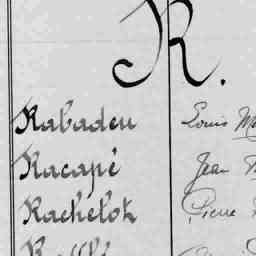 R.
Rabadeu Louis
Racapé Jean
Rachelot Pierre